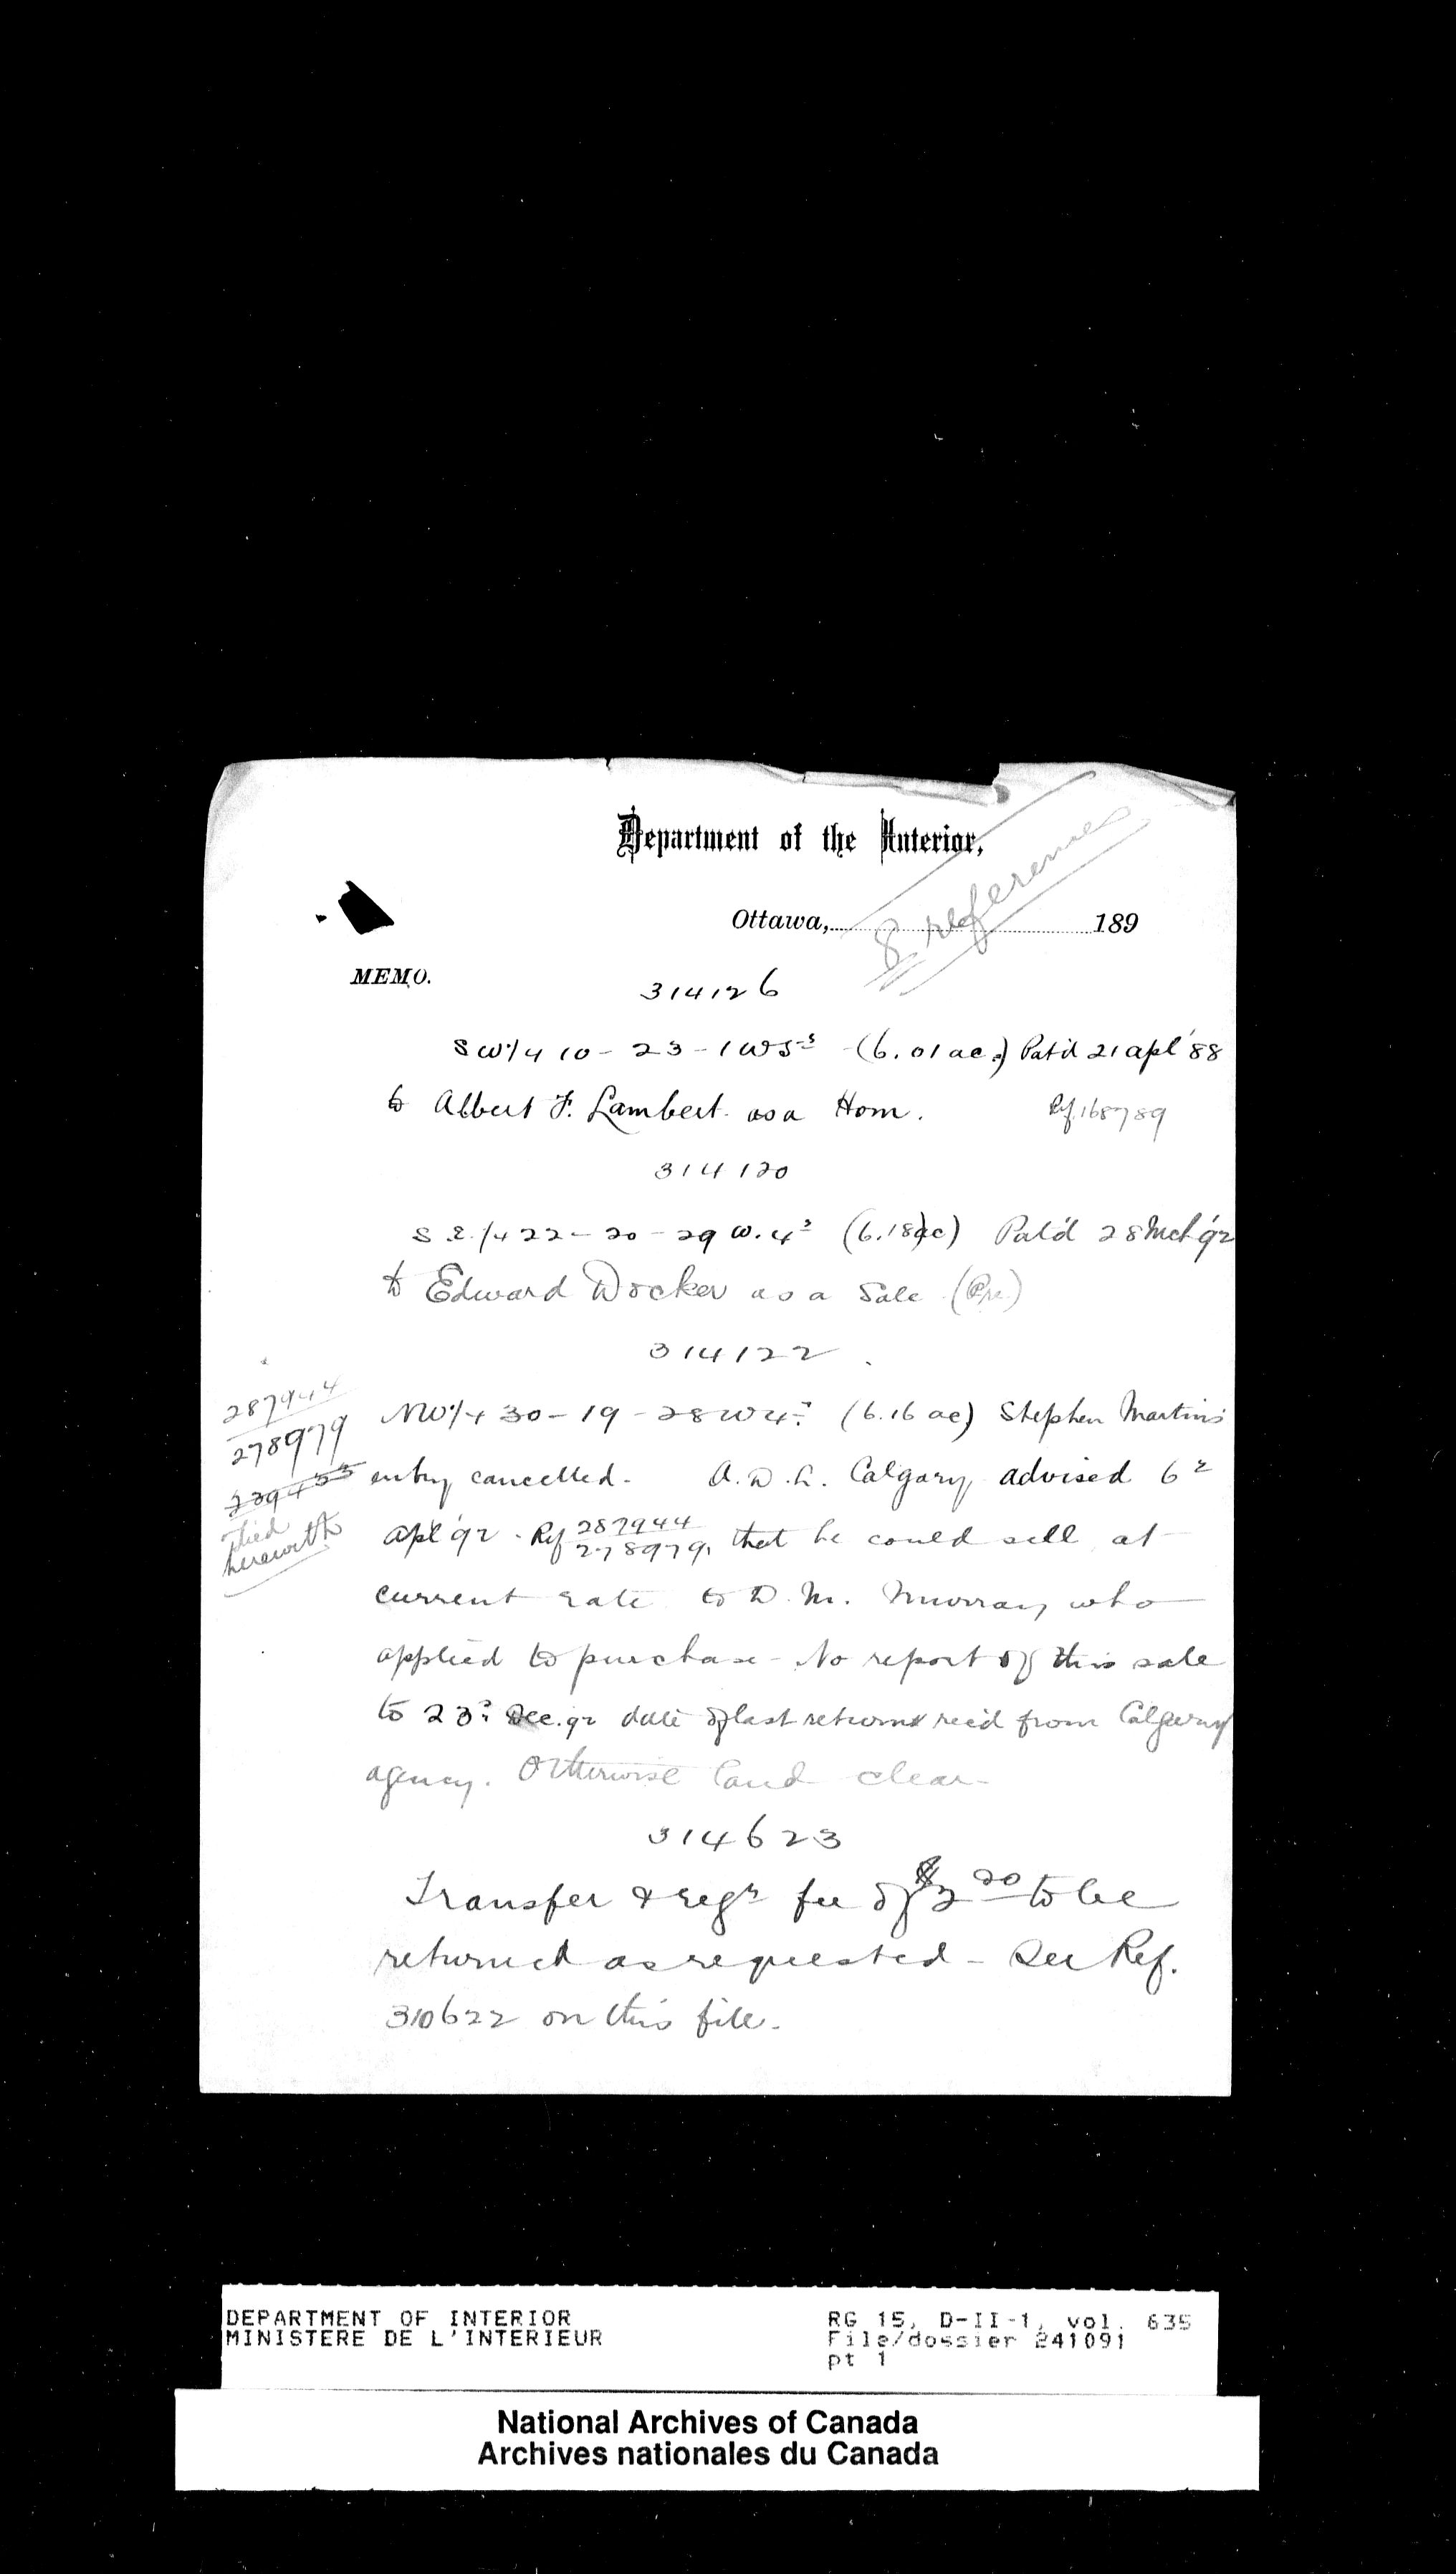 Department of the Interior,
8 references
Ottawa, 189
MEMO.
314126
SW 1/4 10 - 23 - 1 W5 - (6.01 ac.) Pat'd 21 apl '88
to Albert F. Lambert as a Hom. Rf. 168789
314120
S.E. 1/4 22 - 20 - 29 W. 4 (6.18 ac) Pat'd 28 Mch '92
to Edward Docker as a Sale (Pre.)
314122
287944
278979
NW 1/4 30 - 19 - 28 W 4 (6.16 ac) Stephen Martin's
239455
entry cancelled. A.D.L. Calgary advised 6
tied
herewith
apl '92 - Rf 287944
278979, that he could sell at
current rate to D. M. Murray who
applied to purchase - No report of this sale
to 23 Dec. 92 date of last returns rec'd from Calgary
agency. Otherwise land clear -
314623
Transfer & regn fee of $2 00 to be
returned as requested - See Ref.
310622 on this file.
DEPARTMENT OF INTERIOR
MINISTERE DE L'INTERIEUR
RG 15, D-II-1, vol. 635
File/dossier 241091
pt 1
National Archives of Canada
Archives nationales du Canada